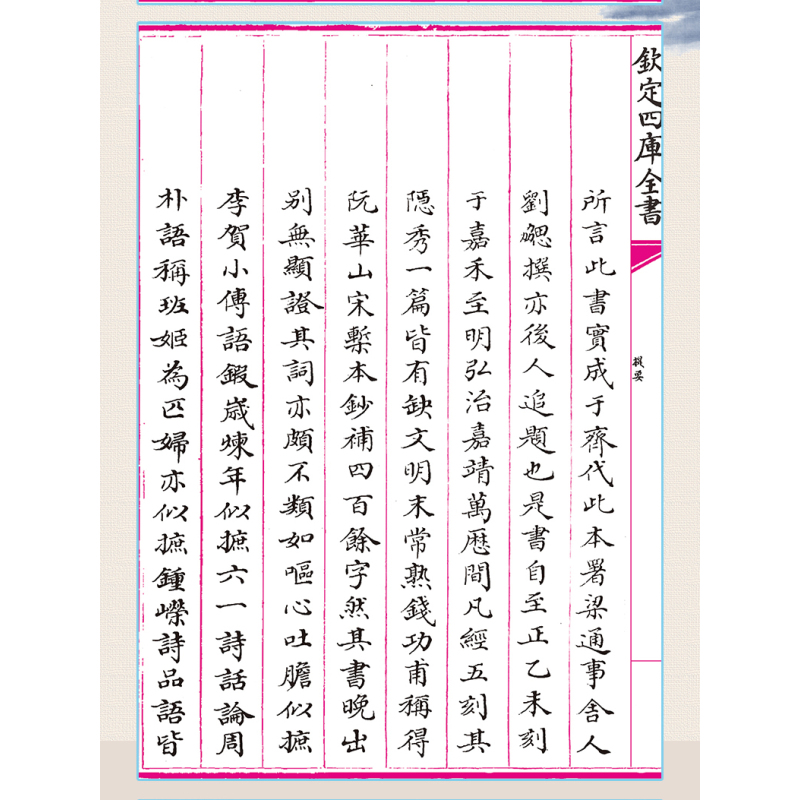 欽定四庫全書
提要
所言此書實成于齊代此本署梁通事舍人
劉勰撰亦後人追題也是書自至正乙未刻
于嘉禾至明弘治嘉靖萬厯間凡經五刻其
隱秀一篇皆有缺文明末常熟錢功甫稱得
阮華山宋槧本鈔補四百餘字然其書晚出
别無顯證其詞亦頗不類如嘔心吐膽似摭
李賀小傳語鍜嵗煉年似摭六一詩話論周
朴語稱班姬為匹婦亦似摭鍾嶸詩品語皆